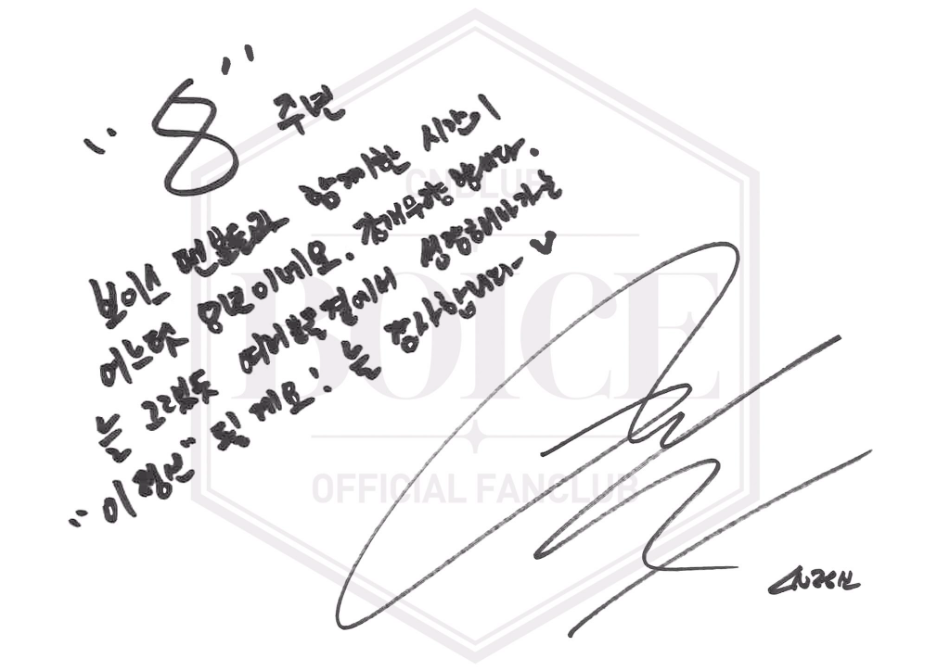 "8" 주년
보이스 팬분들과 함께한 시간이
어느덧 8년이네요. 감개무량합니다.
늘 그랬듯 여러분 곁에서 성장해나가는
"이정신" 될게요! 늘 감사합니다~
CNCLUB
BOICE
OFFICIAL FANCLUB